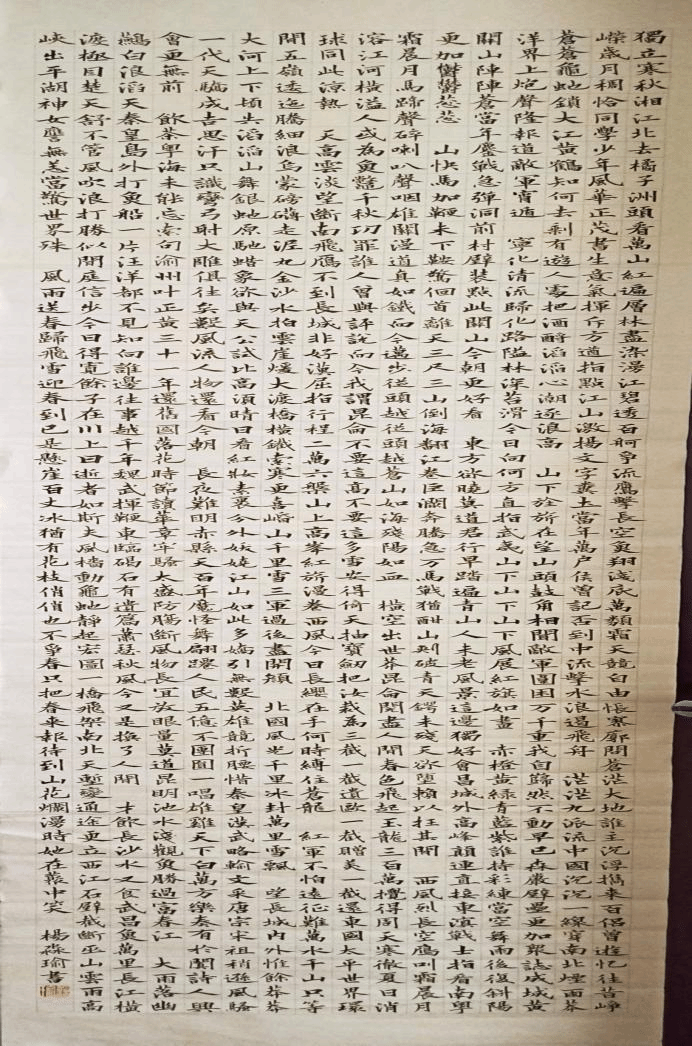 獨立寒秋湘江北去橘子洲頭看萬山紅遍層林盡染漫江碧透百舸爭流鷹擊長空魚翔淺底萬類霜天競自由悵寥廓問蒼茫大地誰主沉浮攜來百侶曾遊憶往昔崢
嶸歲月稠恰同學少年風華正茂書生意氣揮斥方遒指點江山激揚文字糞土當年萬戶侯曾記否到中流擊水浪遏飛舟 茫茫九派流中國沉沉一線穿南北煙雨莽
蒼蒼龜蛇鎖大江黃鶴知何去剩有遊人處把酒酹滔滔心潮逐浪高 山下旌旗在望山頭鼓角相聞敵軍圍困萬千重我自巋然不動早已森嚴壁壘更加眾志成城黃
洋界上炮聲隆報道敵軍宵遁 寧化清流歸化路隘林深苔滑今日向何方直指武夷山下山下山下風展紅旗如畫 赤橙黃綠青藍紫誰持彩練當空舞雨後復斜陽
關山陣陣蒼當年鏖戰急彈洞前村壁裝點此關山今朝更好看 東方欲曉莫道君行早踏遍青山人未老風景這邊獨好會昌城外高峰顛連直接東溟戰士指看南粵
更加鬱鬱蔥蔥 山快馬加鞭未下鞍驚回首離天三尺三山倒海翻江卷巨瀾奔騰急萬馬戰猶酣山刺破青天鍔未殘天欲墮賴以拄其間 西風烈長空鴈叫霜晨月
霜晨月馬蹄聲碎喇叭聲咽雄關漫道真如鐵而今邁步從頭越從頭越蒼山如海殘陽如血 橫空出世莽昆侖閱盡人間春色飛起玉龍三百萬攪得周天寒徹夏日消
溶江河橫溢人或為魚鱉千秋功罪誰人曾與評說而今我謂昆侖不要這高不要這多雪安得倚天抽寶劍把汝裁為三截一截遺歐一截贈美一截還東國太平世界環
球同此涼熱 天高雲淡望斷南飛鴈不到長城非好漢屈指行程二萬六盤山上高峰紅旗漫卷西風今日長纓在手何時縛住蒼龍 紅軍不怕遠征難萬水千山只等
閑五嶺逶迤騰細浪烏蒙磅礴走泥丸金沙水拍雲崖暖大渡橋橫鐵索寒更喜岷山千里雪三軍過後盡開顏 北國風光千里冰封萬里雪飄 望長城內外惟餘莽莽
大河上下頓失滔滔山舞銀蛇原馳蠟象欲與天公試比高須晴日看紅妝素裹分外妖嬈江山如此多嬌引無數英雄競折腰惜秦皇漢武略輸文采唐宗宋祖稍遜風騷
一代天驕成吉思汗只識彎弓射大雕俱往矣數風流人物還看今朝 長夜難明赤縣天百年魔怪舞翩躚人民五億不團圓一唱雄雞天下白萬方樂奏有於闐詩人興
會更無前 飲茶粵海未能忘索句渝州叶正黃三十一年還舊國落花時節讀華章牢騷太盛防腸斷風物長宜放眼量莫道昆明池水淺觀魚勝過富春江 大雨落幽
燕白浪滔天秦皇島外打魚船一片汪洋都不見知向誰邊往事越千年魏武揮鞭東臨碣石有遺篇蕭瑟秋風今又是換了人間 才飲長沙水又食武昌魚萬里長江橫
渡極目楚天舒不管風吹浪打勝似閑庭信步今日得寬餘子在川上曰逝者如斯夫風檣動龜蛇靜起宏圖一橋飛架南北天塹變通途更立西江石壁截斷巫山雲雨高
峽出平湖神女應無恙當驚世界殊 風雨送春歸飛雪迎春到已是懸崖百丈冰猶有花枝俏俏也不爭春只把春來報待到山花爛漫時她在叢中笑 楊淼瑜書